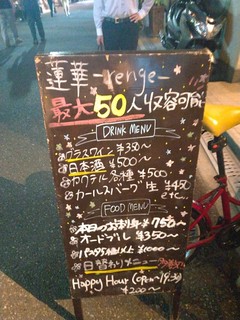 蓮華-renge-
最大50人収容可能
DRINK MENU
グラスワイン ¥350〜
日本酒 ¥500〜
カクテル各種 ¥500〜
カールスバーグ 生 ¥450
FOOD MENU
本日のお刺身 ¥750〜
オードブル ¥350〜
¥1000〜
日替わりメニュー
Happy Hour (open〜19:30)
¥200〜